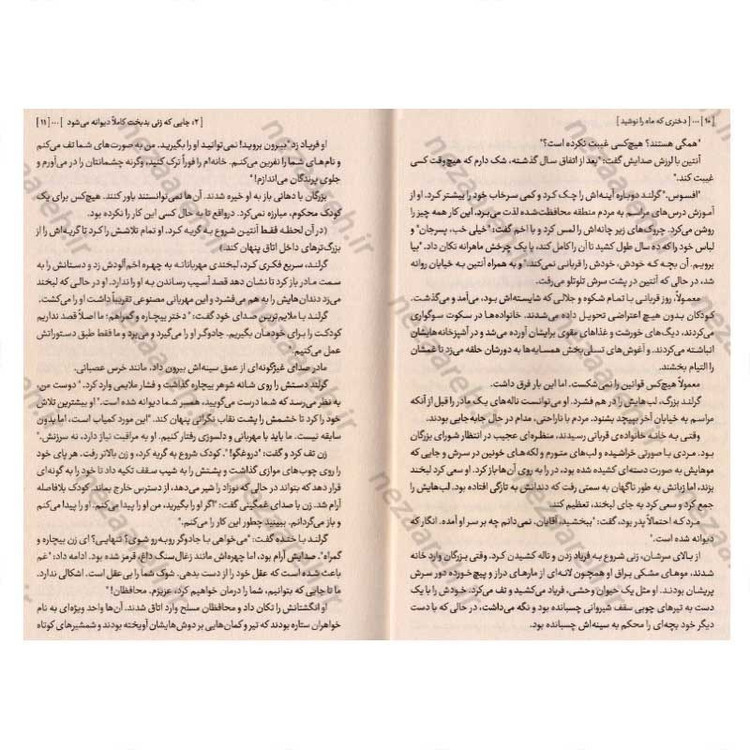 [ ۱۰ ] ... [ دختری که ماه را نوشید ]
"همگی هستند؟ هیچ‌کسی غیبت نکرده است؟"
آنتین با لرزش صدایش گفت: "بعد از اتفاق سال گذشته، شک دارم که هیچ‌وقت کسی
غیبت کند."
"افسوس." گرلند دوباره آینه‌اش را چک کرد و کمی سرخاب خود را بیشتر کرد. او از
آموزش درس‌های مراسم به مردم منطقه محافظت‌شده لذت می‌برد. این کار همه چیز را
روشن می‌کرد. چروک‌های زیر چانه‌اش را لمس کرد و با اخم گفت: "خیلی خب، پسرجان" و
لباس خود را که ده سال طول کشید تا آن را کامل کند، با یک چرخش ماهرانه تکان داد. "بیا
برویم. آن بچه که خودش، خودش را قربانی نمی‌کند." و به همراه آنتین به خیابان روانه
شد، در حالی که آنتین در پشت سرش تلوتلو می‌رفت.
معمولاً، روز قربانی با تمام شکوه و جلالی که شایسته‌اش بود، می‌آمد و می‌گذشت.
کودکان بدون هیچ اعتراضی تحویل داده می‌شدند. خانواده‌ها در سکوت سوگواری
می‌کردند، دیگ‌های خورشت و غذاهای مقوی برایشان آورده می‌شد و در آشپزخانه‌هایشان
انباشته می‌کردند. و آغوش‌های تسلی‌بخش همسایه‌ها به دورشان حلقه می‌زد تا غمشان
را التیام بخشند.
معمولاً هیچ‌کس قوانین را نمی‌شکست. اما این بار فرق داشت.
گرلند بزرگ، لب‌هایش را در هم فشرد. او می‌توانست ناله‌های یک مادر را قبل از آنکه
مراسم به خیابان آخر بپیچد بشنود. مردم با ناراحتی، مدام در حال جابه‌جایی بودند.
وقتی به خانه خانواده‌ی قربانی رسیدند، منظره‌ای عجیب در انتظار شورای بزرگان
بود. مردی با صورتی خراشیده و لب‌های متورم و لکه‌های خونین در سرش و جایی که
موهایش به صورت دسته‌ای کشیده شده بود، در را به روی آن‌ها باز کرد. او سعی کرد لبخند
بزند، اما زبانش به طور ناگهان به سمتی رفت که دندانش به تازگی افتاده بود. لب‌هایش را
جمع کرد و سعی کرد به جای لبخند، تعظیم کند.
مرد که احتمالاً پدر بود، گفت: "ببخشید، آقایان. نمی‌دانم چه بر سر او آمده. انگار که
دیوانه شده است."
از بالای سرشان، زنی شروع به فریاد زدن و ناله کشیدن کرد. وقتی بزرگان وارد خانه
شدند، موهای مشکی براق او همچون لانه‌ای از مارهای دراز و پیچ‌خورده دور سرش
پریشان بودند. او مثل یک حیوان وحشی، فریاد می‌کشید و تف می‌کرد. خودش را با یک
دست به تیرهای چوبی سقف شیروانی چسبانده بود و نگه می‌داشت، در حالی که با دست
دیگر خود بچه‌ای را محکم به سینه‌اش چسبانده بود.
[ ۲: جایی که زنی بدبخت کاملاً دیوانه می‌شود ] ... [ ۱۱ ]
او فریاد زد "بیرون بروید! نمی‌توانید او را بگیرید. من به صورت‌های شما تف می‌کنم
و نام‌های شما را نفرین می‌کنم. خانه‌ام را فوراً ترک کنید، وگرنه چشمانتان را در می‌آورم و
جلوی پرندگان می‌اندازم!"
بزرگان با دهانی باز به او خیره شدند. آن‌ها نمی‌توانستند باور کنند. هیچ‌کس برای یک
کودک محکوم، مبارزه نمی‌کرد. درواقع تا به حال کسی این کار را نکرده بود.
(در آن لحظه فقط آنتین شروع به گریه کرد. او تمام تلاشش را کرد تا گریه‌اش را از
بزرگ‌ترهای داخل اتاق پنهان کند.)
گرلند، سریع فکری کرد، لبخندی مهربانانه به چهره اخم‌آلودش زد و دستانش را به
سمت مادر باز کرد تا نشان دهد قصد آسیب رساندن به او را ندارد. او در حالی که لبخند
می‌زد دندان‌هایش را به هم می‌فشرد و این مهربانی مصنوعی تقریباً داشت او را می‌کشت.
گرلند با ملایم‌ترین صدای خود گفت: "دختر بیچاره و گمراهم؛ ما اصلاً قصد نداریم
کودکت را برای خودمان بگیریم. جادوگر او را می‌گیرد و می‌برد و ما فقط طبق دستوراتش
عمل می‌کنیم."
مادر صدای غیژگونه‌ای از عمق سینه‌اش بیرون داد، مانند خرس عصبانی.
گرلند دستش را روی شانه شوهر بیچاره گذاشت و فشار ملایمی وارد کرد. "دوست من،
به نظر می‌رسد که شما درست می‌گویید، همسر شما دیوانه شده است." او بیشترین تلاش
خود را کرد تا خشمش را پشت نقاب نگرانی پنهان کند. "این مورد کمیاب است، اما بدون
سابقه نیست. ما باید با مهربانی و دلسوزی رفتار کنیم. او به مراقبت نیاز دارد، نه سرزنش."
زن تف کرد و گفت: "دروغگو!" کودک شروع به گریه کرد، و زن بالاتر رفت. هر پای خود
را روی چوب‌های موازی گذاشت و پشتش را به شیب سقف تکیه داد تا خود را به گونه‌ای
قرار دهد که بتواند در حالی که نوزاد را شیر می‌دهد، از دسترس خارج بماند. کودک بلافاصله
آرام شد. زن با صدای غمگینی گفت: "اگر او را بگیرید، من او را پیدا می‌کنم. او را پیدا می‌کنم
و باز می‌گردانم. ببینید چطور این کار را می‌کنم."
گرلند با خنده گفت: "می‌خواهی با جادوگر روبه‌رو شوی؟ تنهایی؟ ای زن بیچاره و
گمراه." صدایش آرام بود، اما چهره‌اش مانند زغال‌سنگ داغ، قرمز شده بود. ادامه داد: "غم
باعث شده است که عقل خود را از دست بدهی. شوک شما را بی عقل است. اشکالی ندارد.
ما تا جایی که بتوانیم، شما را درمان خواهیم کرد، عزیزم. محافظان!"
او انگشتانش را تکان داد و محافظان مسلح وارد اتاق شدند. آن‌ها واحد ویژه‌ای به نام
خواهران ستاره بودند که تیر و کمان‌هایی بر دوش‌هایشان آویخته بودند و شمشیرهای کوتاه
nezaareh.ir